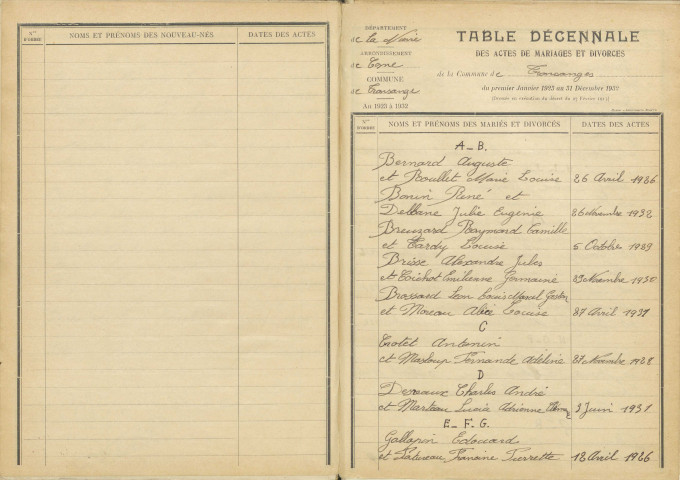 Nos D'ORDRE
NOMS ET PRÉNOMS DES NOUVEAU-NÉS
DATES DES ACTES
DÉPARTEMENT
de la
ARRONDISSEMENT
de
COMMUNE
de
An 1923 à 1932
TABLE DÉCENNALE
DES ACTES DE MARIAGES ET DIVORCES
de la Commune de
du premier Janvier 1923 au 31 Décembre 1932
(Dressée en exécution du décret du
Nos D'ORDRE
NOMS ET PRÉNOMS DES MARIÉS ET DIVORCÉS
DATES DES ACTES
A_B.
Bernard Auguste
et Roullet Marie Louise 26 Avril 1926
Bonin René et
Julie Eugenie 26 Novembre 1932
Breuzard Raymond Camille
et Tardy Louise 5 Octobre 1929
Brisse Alexandre Jules
et Emilienne Germaine Novembre 1930
Brossard Leon Louis Marcel Gaston
et Moreau Alice Louise 27 Avril 1931
C
Antonin
et Fernande Adeline 27 Novembre 1928
D
Charles André
et Marteau Lucia Adrienne 2 Juin 1931
E_F_G.
Gallopin Edouard
et Pierrette 12 Avril 1926